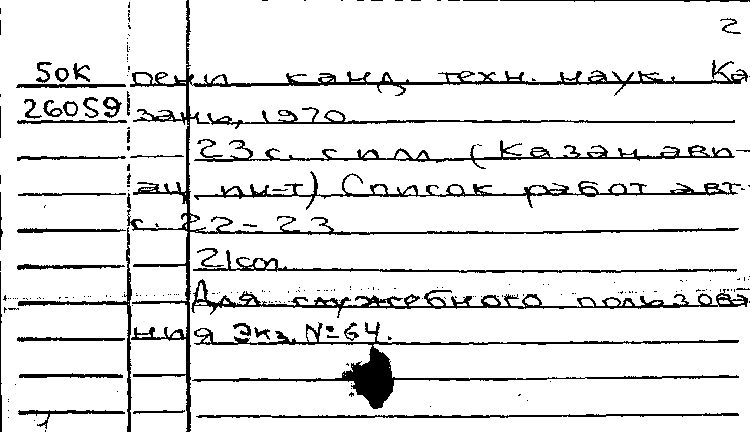 2
50к пени канд. техн. наук. Ка
26059 зань, 1970.
23 с. с илл (Казан ави-
ац. ин-т) Список работ авт.
с. 22-23
21см.
Для служебного пользова
ния Экз. №64.
1